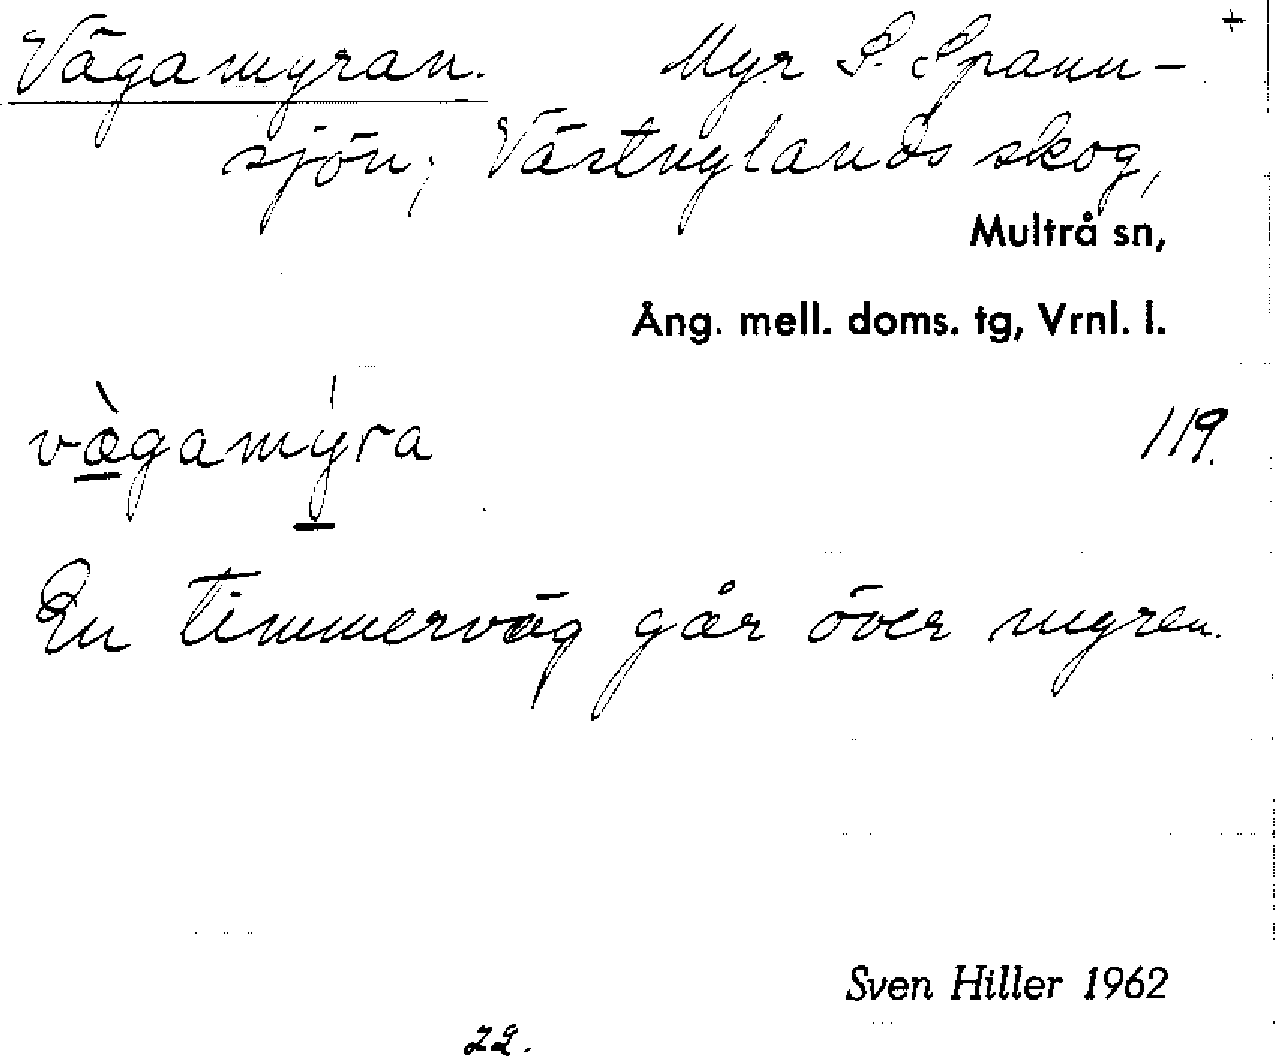 Vägamyran. Myr S. Spann- +
sjön; Västnylands skog,
Multrå sn,
Ång. mell. doms. tg, Vrnl. l.
væ̀gamýra 119.
En timmerväg går över myren.
Sven Hiller 1962
22.